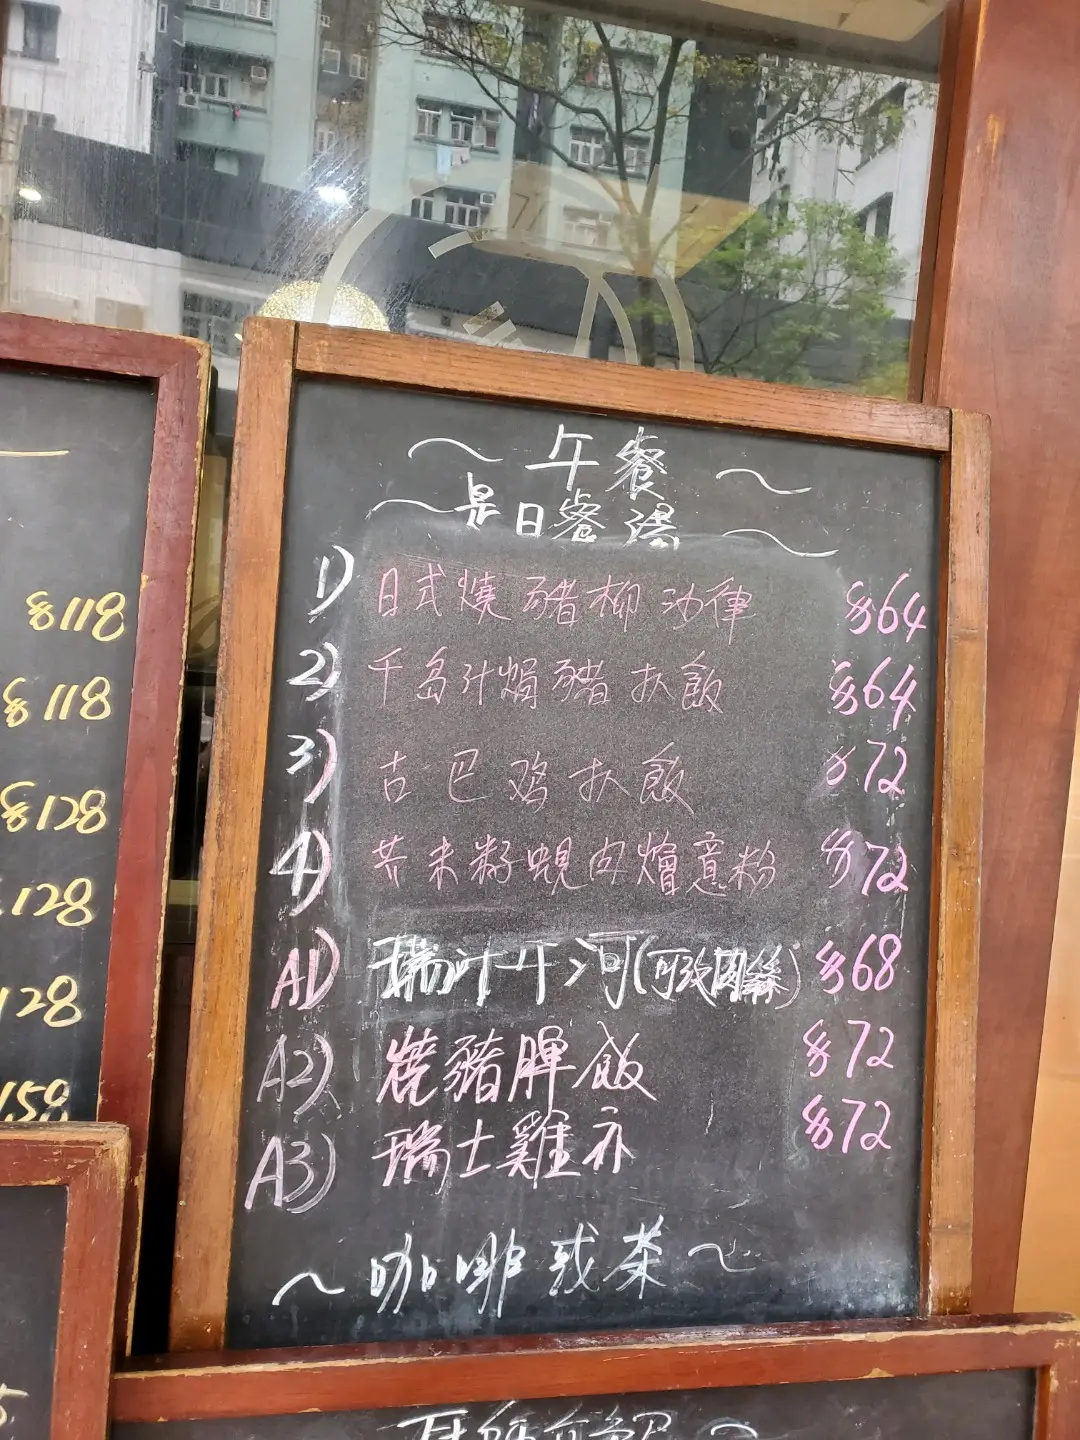 $118
$118
$128
128
128
158
~午餐~
~是日餐湯~
1) 日式燒豬柳沙律 $64
2) 千島汁焗豬扒飯 $64
3) 古巴鸡扒飯 $72
4) 芥末籽蜆肉燴意粉 $72
A1) 瑞汁牛河(可改肉絲) $68
A2) 燒豬脾飯 $72
A3) 瑞士雞亦 $72
~咖啡或茶~